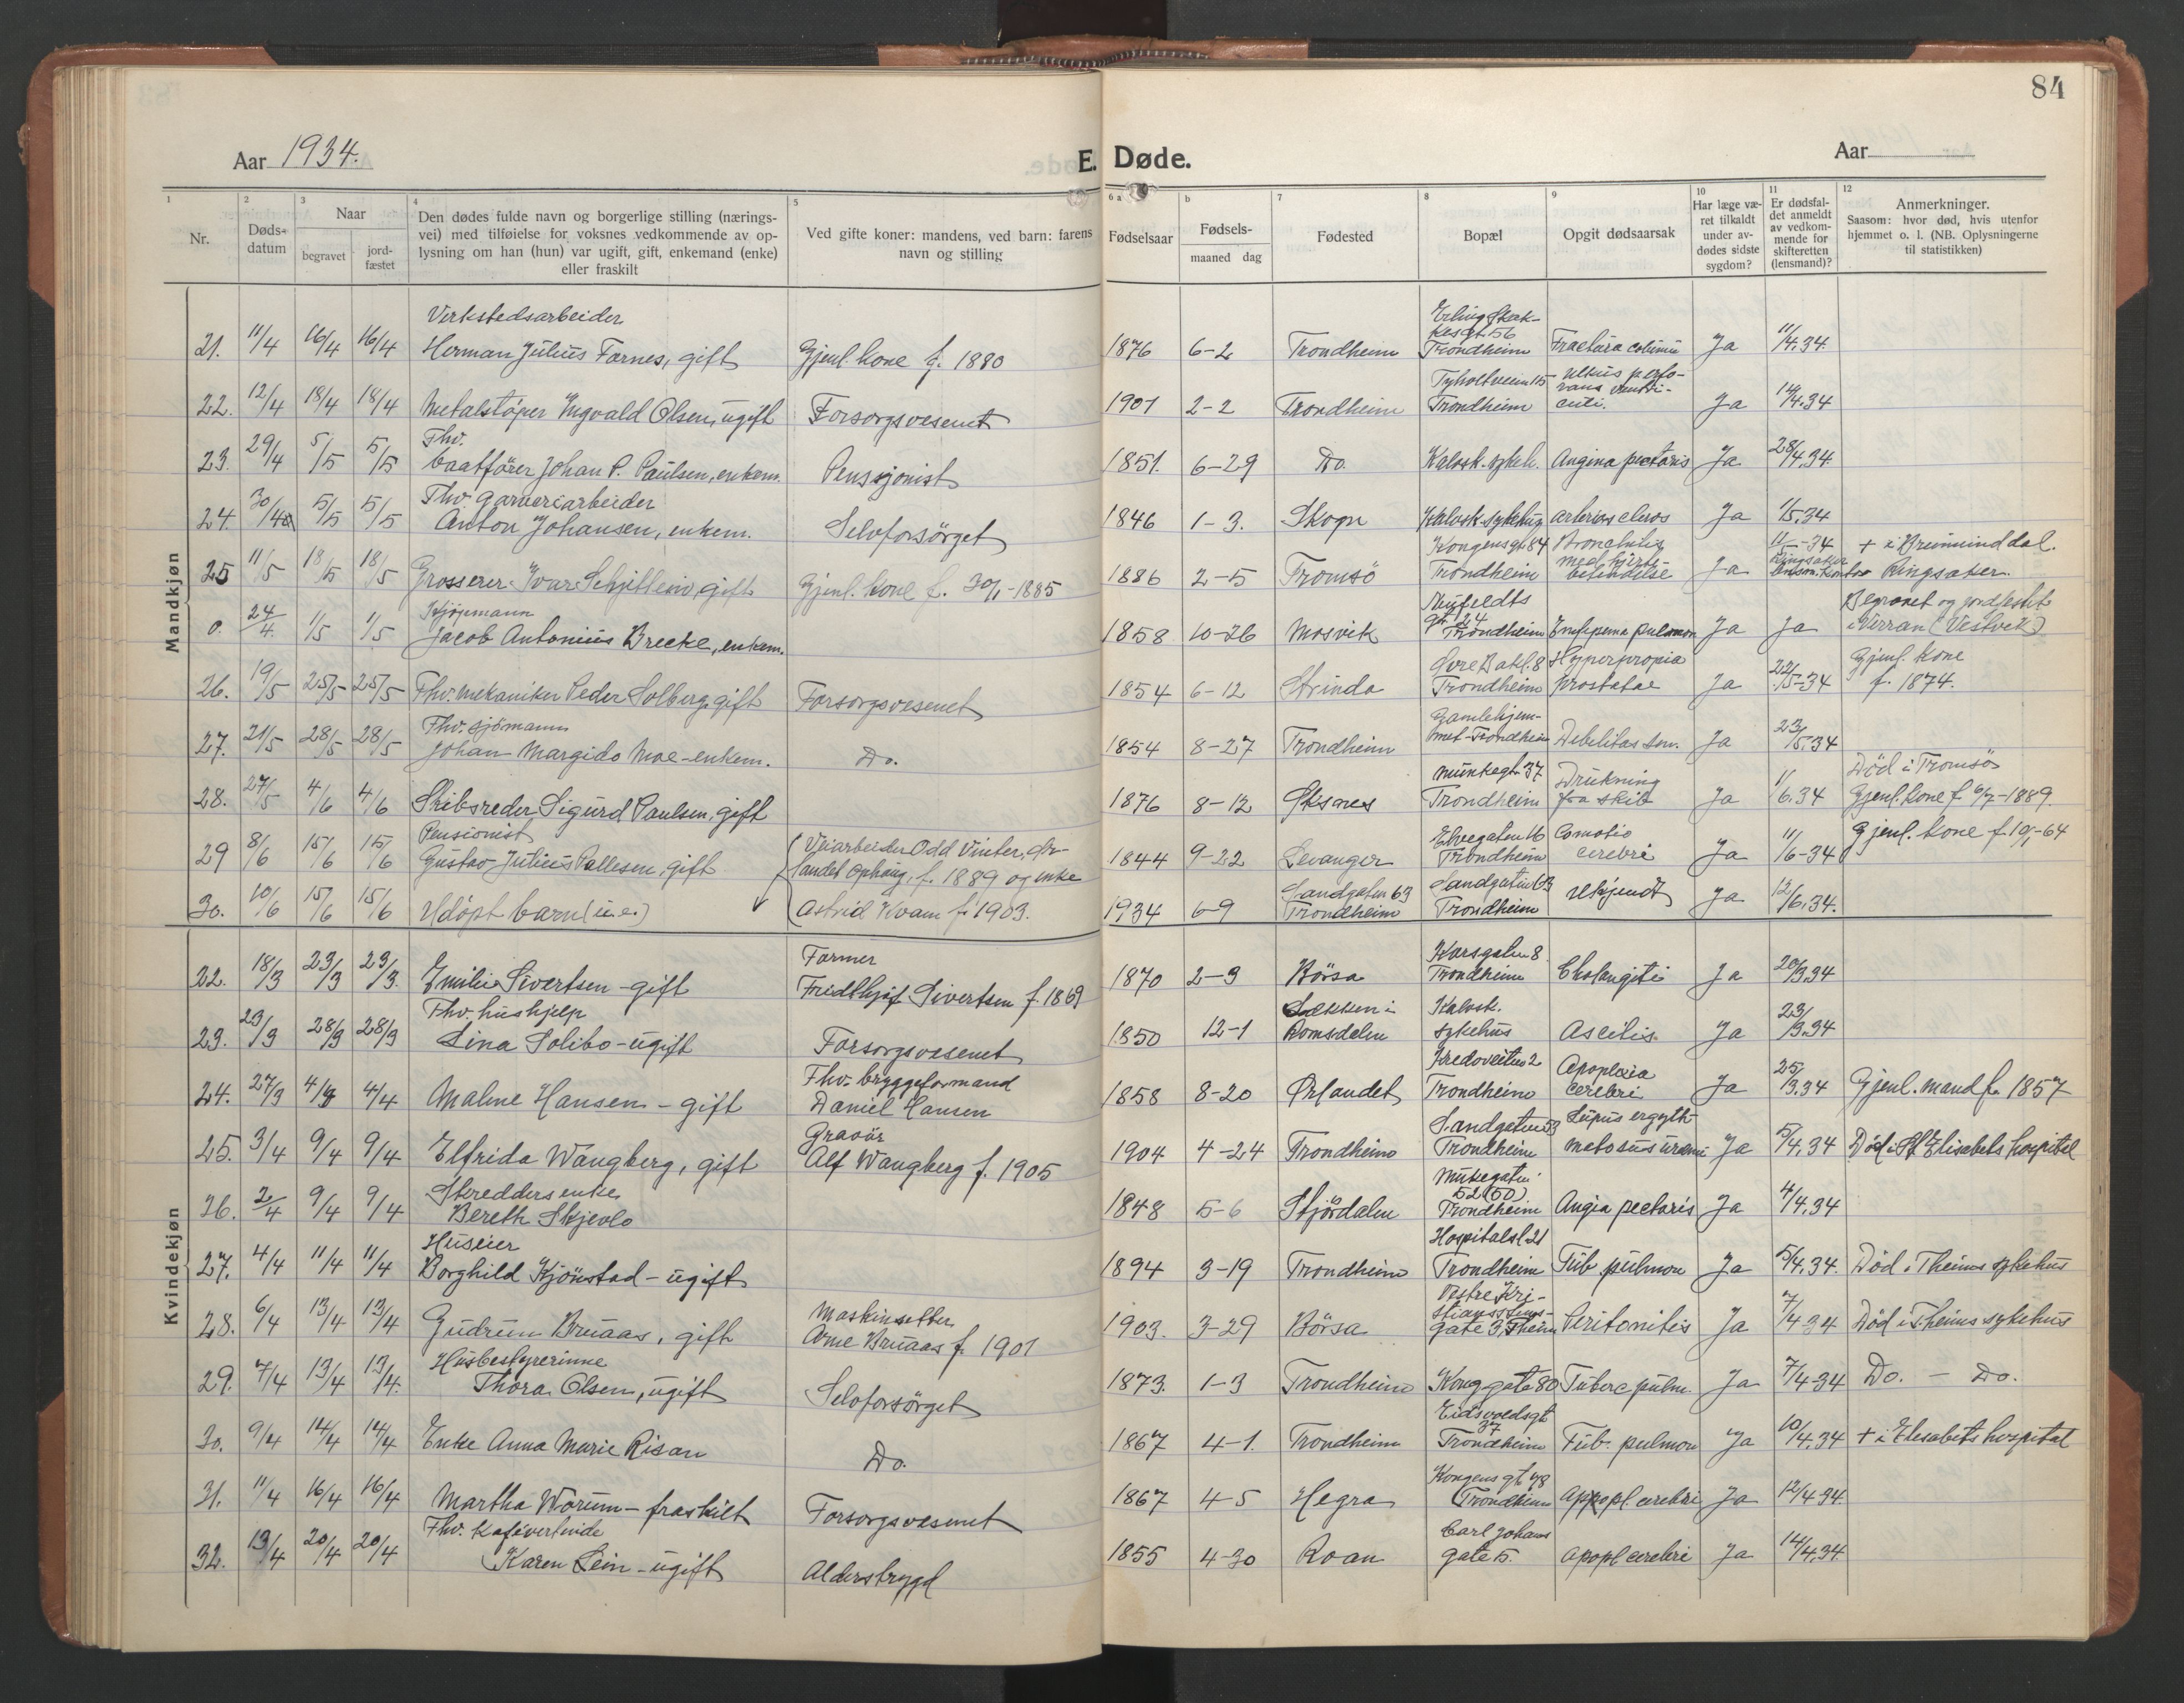 84
Aar 1934.
E. Døde.
Aar
1
2
3
4
5
6 a
b
7
8
9
10
11
12
Nr.
Døds-
datum
Naar
begravet
jord-
fæstet
Den dødes fulde navn og borgerlige stilling (nærings-
vei) med tilføielse for voksnes vedkommende av op-
lysning om han (hun) var ugift, gift, enkemand (enke)
eller fraskilt
Ved gifte koner: mandens, ved barn: farens
navn og stilling
Fødselsaar
Fødsels-
maaned dag
Fødested
Bopæl
Opgit dødsaarsak
Har læge væ-
ret tilkaldt
under av-
dødes sidste
sygdom?
Er dødsfal-
det anmeldt
av vedkom-
mende for
skifteretten
(lensmand)?
Anmerkninger.
Saasom: hvor død, hvis utenfor
hjemmet o. l. (NB. Oplysningerne
til statistikken)
Mandkjøn
21. 11/4 16/4 16/4 Verkstedsarbeider
Herman Julius Farnes, gift Gjenl. kone f. 1880 1876 6-2 Trondheim Erling Skak-
kesgt. 56
Trondheim Fractura Ja 11/4.34.
22. 12/4 18/4 18/4 Metalstøper Yngvald Olsen, ugift Forsorgsvesenet 1901 2-2 Trondheim Tyholtveien 115
Trondheim Ulkus perfo-
rans ventri-
culi. Ja 14/4.34
23. 29/4 5/5 5/5 Fhv.
baatfører Johan P. Paulsen, enkem. Pensjonist 1851. 6-29 Do. Kalvsk. sykeh. Angina pectoris Ja 28/4.34.
24. 30/4 5/5 5/5 Fhv. garveriarbeider
Anton Johansen, enkem. Selvforsörget 1846 1-3. Skogn Kalvsk. sykehus Ja 1/5.34
25 11/5 18/5 18/5 Grosserer Ivar gift Gjenl. kone f. 30/1-1885 1886 2-5 Tromsö Kongensgt. 84
Trondheim Bronchitis
med hjerte-
Ja 11/5-34
Ringsaker
+ i Brumunddal.
Ringsaker.
0. 24/4. 1/5 1/5 Kjøpmann
Jacob Antonius Brecke, enkem. 1858 10-26 Mosvik Nyfeldts
gt. 24
Trondheim Emfysema pulmon Ja Ja Begravet og jordfestet
i Verran (Vestvik)
26. 19/5 25/5 25/5 Fhv. mekaniker Peder Solberg, gift Forsorgsvesenet 1854 6-12 Strinda Øvre Bakl. 8
Trondheim Hyperpropia
prostatae Ja 22/5-34 Gjenl. kone
f. 1874.
27. 21/5 28/5 28/5 Fhv. sjömann
Johan Margido Moe - enkem. Do. 1854 8-27 Trondheim Gamlehjem-
met-Trondheim Debelitas sen. Ja 23/5.34
28. 27/5 4/6 4/6 Skibsreder Sigurd Paulsen, gift 1876 8-12 Øksnes Munkegt. 37
Trondheim Drukning
fra skib Ja 1/6.34 Död i Tromsö
Gjenl. kone f. 6/7-1889.
29 8/6 15/6 15/6 Pensionist
Gustav Julius Pallesen, gift 1844 9-22 Levanger Elvegaten 16
Trondheim Comotio
cerebri Ja 11/6-34 Gjenl. kone f. 10/1-64
30. 10/6 15/6 15/6 Udöpt barn (u.e.) Veiarbeider Odd Vinter, Ør-
landet ophavg. f. 1889 og enke
Astrid Kvam f. 1903. 1934 6-9 Sandgaten 63
Trondheim Sandgaten 63
Trondheim Ukjendt Ja 12/6.34.
Kvindekjøn
22. 18/3 23/3 23/3. Emilie Sivertsen - gift Farmer
Fridthjof Sivertsen f. 1869 1870 2-3 Börsa Korsgaten 8.
Trondheim Cholangiti Ja 20/3.34
23. 23/3 28/3 28/3 Fhv. hushjelp
Lina Solibo - ugift Forsorgsvesenet 1850 12-1 i
Romsdalen Kalvsk.
sykehus Ascitis. Ja 23/3.34
24. 27/3 4/4 4/4 Malene Hansen - gift Fhv. bryggeformand
Daniel Hansen 1858 8-20 Ørlandet 2
Trondheim Apoplexia
cerebri Ja 25/3.34 Gjenl. mand f. 1857
25. 3/4 9/4 9/4 Elfrida Wangberg, gift Gravör
Alf Wangberg f. 1905 1904 4-24 Trondheim Sandgaten 53
Trondheim Lupus eryth-
matosus uræmi Ja 5/4.34 Död i St. Elisabets hospital
26. 2/4 9/4 9/4 Skreddersenke
Bereth Skjevlo 1848 5-6 Stjördalen Munkegaten
52 (50)
Trondheim Angia pectoris Ja 4/4.34
27. 4/4 11/4 11/4 Huseier
Borghild Kjönstad - ugift 1894 3-19 Trondheim Hospitalsl. 21
Trondheim Tub pulmon Ja 5/4.34. Död i Theims sykehus
28. 6/4 13/4 13/4 Gudrun Bruaas, gift Maskinsetter
Arne Bruaas f. 1901 1903. 3-29 Börsa Vestre Kri-
stianssunds-
gate 3, Theim Peritonitis Ja 7/4 34 Död i Theims sykehus
29. 7/4 13/4 13/4. Husbestyrerinne
Thora Olsen, ugift Selvforsörget 1873. 1-3 Trondheim Kong. gate 80 Tuberc pulm. Ja 7/4-34 Do. - Do.
30. 9/4 14/4 14/4 Enke Anna Marie Risan Do. 1867 4-1. Trondheim Eidsvoldsgt.
37
Trondheim Tub. pulmon Ja 10/4.34 + i Elesabets hospital
31. 11/4 16/4 16/4 Martha Worum - fraskilt Forsorgsvesenet 1867 4-5 Hegra Kongens gt. 78
Trondheim Appopl. cerebri Ja 12/4-34.
32. 13/4 20/4 20/4 Fhv. kafévertinde
Karen Lein - ugift Alderstrygd 1855 4-30 Roan Carl Johans
gate 5. Apopl cerebri Ja 14/4.34